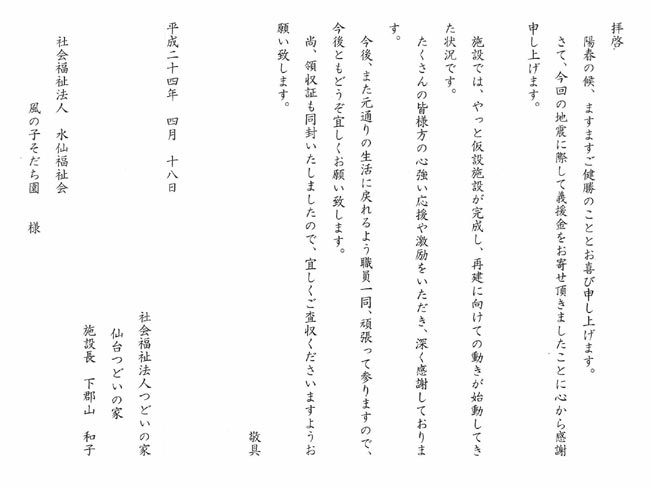 拝啓
陽春の候、ますますご健勝のこととお喜び申し上げます。
さて、今回の地震に際して義援金をお寄せ頂きましたことに心から感謝
申し上げます。
施設では、やっと仮設施設が完成し、再建に向けての動きが始動してき
た状況です。
たくさんの皆様方の心強い応援や激励をいただき、深く感謝しておりま
す。
今後、また元通りの生活に戻れるよう職員一同、頑張って参りますので、
今後ともどうぞ宜しくお願い致します。
尚、領収証も同封いたしましたので、宜しくご査収くださいますようお
願い致します。
敬具
平成二十四年 四月 十八日
社会福祉法人つどいの家
仙台つどいの家
施設長 下郡山 和子
社会福祉法人 水仙福祉会
風の子そだち園 様